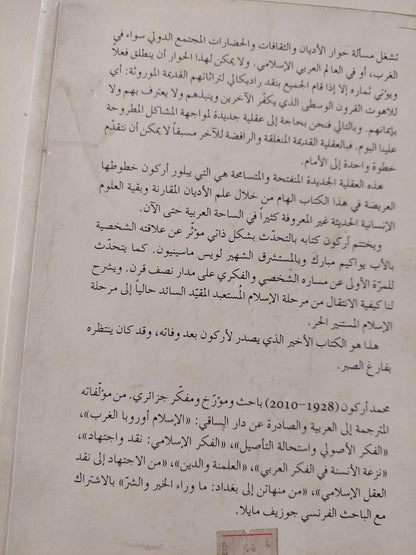 تشغل مسألة حوار الأديان والثقافات والحضارات المجتمع الدولي سواء في
الغرب، أو في العالم العربي الإسلامي. ولا يمكن لهذا الحوار أن ينطلق فعلاً
ويؤتي ثماره إلا إذا قام الجميع بنقد راديكالي لتراثاتهم القديمة الموروثة: أي
للاهوت القرون الوسطى الذي يكفّر الآخرين وينبذهم ولا يعترف بهم ولا
بإيمانهم. وبالتالي فنحن بحاجة إلى عقلية جديدة لمواجهة المشاكل المطروحة
علينا اليوم. فبالعقلية القديمة المنغلقة والرافضة للآخر مسبقاً لا يمكن أن نتقدّم
خطوة واحدة إلى الأمام.
هذه العقلية الجديدة المنفتحة والمتسامحة هي التي يبلور أركون خطوطها
العريضة في هذا الكتاب الهام من خلال علم الأديان المقارنة وبقية العلوم
الإنسانية الحديثة غير المعروفة كثيراً في الساحة العربية حتى الآن.
ويختتم أركون كتابه بالتحدّث بشكل ذاتي مؤثّر عن علاقته الشخصية
بالأب يواكيم مبارك وبالمستشرق الشهير لويس ماسينيون. كما يتحدّث
للمرّة الأولى عن مساره الشخصي والفكري على مدار نصف قرن. ويشرح
لنا كيفية الانتقال من مرحلة الإسلام المُستعبد المقيّد السائد حالياً إلى مرحلة
الإسلام المستنير الحر.
هذا هو الكتاب الأخير الذي يصدر لأركون بعد وفاته، وقد كان ينتظره
بفارغ الصبر.
محمد أركون (1928–2010) باحث ومؤرّخ ومفكّر جزائري. من مؤلّفاته
المترجمة إلى العربية والصادرة عن دار الساقي: «الإسلام أوروبا الغرب»،
«الفكر الأصولي واستحالة التأصيل»، «الفكر الإسلامي: نقد واجتهاد»،
«نزعة الأنسنة في الفكر العربي»، «العلمنة والدين»، «من الاجتهاد إلى نقد
العقل الإسلامي»، «من منهاتن إلى بغداد: ما وراء الخير والشرّ» بالاشتراك
مع الباحث الفرنسي جوزيف مايلا.